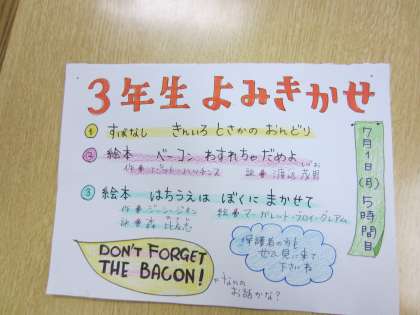 3年生 よみきかせ
① すばなし きんいろ とさかの おんどり
② 絵本 ベーコン わすれちゃだめよ
作・画 パット・ハッチンス 訳 渡辺 茂男
しげお
③ 絵本 はちうえは ぼくに まかせて
作 ジーン・ジオン 絵 マーガレット・ブロイ・グレアム
訳 森 比左志
7月1日(月)5時間目
保護者の方も
ぜひ見に来て
下さいね
DON'T FORGET
THE BACON!
お話かな?